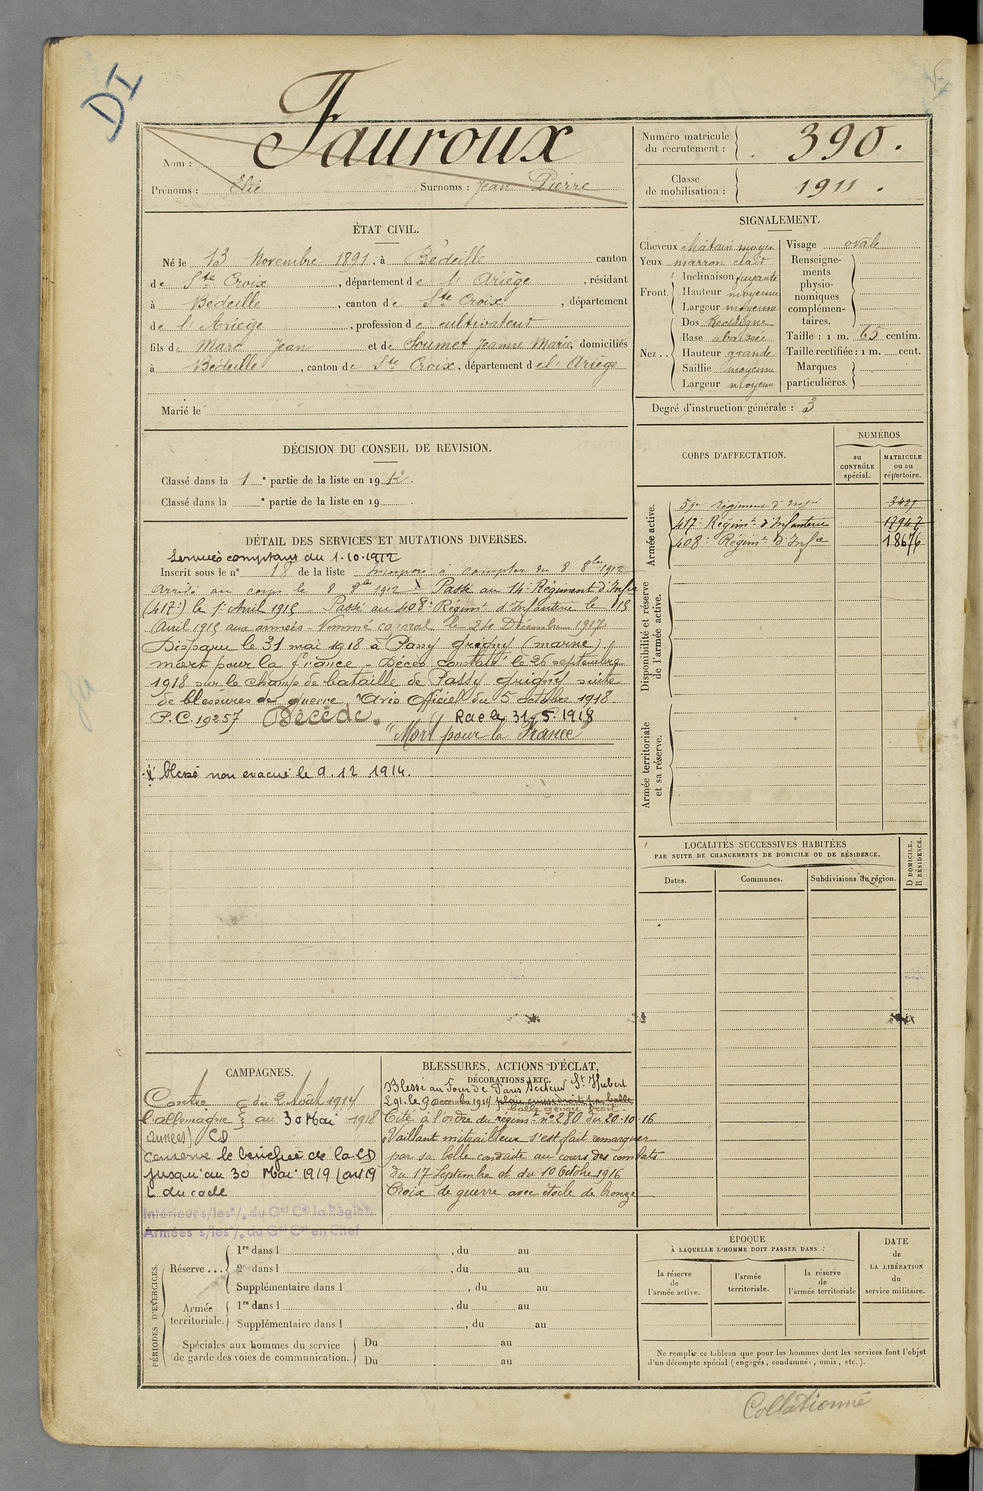 DI
Nom : Fauroux
Prénoms : Elie Surnoms : Jean Pierre
Numéro matricule du recrutement : 390.
Classe de mobilisation : 1911.
ÉTAT CIVIL.
Né le 13 Novembre 1891, à Bédeille canton
de Ste Croix, département de l'Ariège, résidant
à Bédeille, canton de Ste Croix, département
de l'Ariège, profession de cultivateur
fils de Marc Jean et de Soumet Jeanne Marie, domiciliés
à Bédeille, canton de Ste Croix, département de l'Ariège
Marié le
SIGNALEMENT.
Cheveux châtain moyen
Yeux marron clair
Front. Inclinaison fuyante
Hauteur moyenne
Largeur moyenne
Nez.. Dos Rectiligne
Base abaissée
Hauteur grande
Saillie moyenne
Largeur moyenne
Visage ovale
Renseignements physionomiques complémentaires.
Taille : 1 m. 65 centim.
Taille rectifiée : 1 m. cent.
Marques particulières.
Degré d'instruction générale : 3
DÉCISION DU CONSEIL DE REVISION.
Classé dans la 1e partie de la liste en 1912.
Classé dans la e partie de la liste en 19 .
CORPS D'AFFECTATION.
NUMÉROS
au CONTRÔLE spécial.
MATRICULE ou au répertoire.
Armée active.
Régiment d'Infie
417e Regimt d'Infanterie 17947
408e Régimt d'Infie 18676
Disponibilité et réserve de l'armée active.
Armée territoriale et sa réserve.
DÉTAIL DES SERVICES ET MUTATIONS DIVERSES.
Services comptant du 1-10-1912
Inscrit sous le n° 18 de la liste Incorporé à compter du 8 8bre 1912
Arrivé au corps le 8 8bre 1912 Passé au 14e Régiment d'Infie
(417e) le 1er Avril 1915 - Passé au 408e Régimt d'Infanterie le 15
Avril 1915 aux armées - Nommé caporal le 21 Décembre 1917
Disparu le 31 mai 1918 à Passy Grigny (marne)
mort pour la france - Décès constaté le 26 septembre
1918 sur le champ de bataille de Passy Grigny suite
de blessures de guerre. Avis Officiel du 5 octobre 1918.
P.C. 19257 Décédé. Race 31-5-1918
"Mort pour la France"
blessé non évacué le 9.12 1914.
LOCALITÉS SUCCESSIVES HABITÉES
PAR SUITE DE CHANGEMENTS DE DOMICILE OU DE RÉSIDENCE.
Dates.
Communes.
Subdivisions de région.
D DOMICILE. R RÉSIDENCE.
CAMPAGNES.
Contre du 2 Août 1914
l'allemagne au 30 Mai 1918
armées) CD
conserve le bénéfice de la CD
jusqu'au 30 Mai 1919 (art 19
L du code
Intérieur s/les % du Gal Ct la Région
Armées s/les % du Gal Ct en Chef
BLESSURES, ACTIONS D'ÉCLAT,
DÉCORATIONS, ETC.
Blessé au Four de Paris Secteur St Hubert
le 9 décembre 1914 plaie cuisse droite par balle
balle genou droit
Cité à l'ordre du régimt n° 280 du 20-10-16
Vaillant mitrailleur s'est fait remarquer
par sa belle conduite au cours des combats
du 17 Septembre et du 10 Octobre 1916
Croix de guerre avec étoile de bronze
PÉRIODES D'EXERCICES.
Réserve... 1re dans l , du au
2e dans l , du au
Supplémentaire dans l , du au
Armée territoriale. 1re dans l , du au
Supplémentaire dans l , du au
Spéciales aux hommes du service de garde des voies de communication. Du au
Du au
ÉPOQUE
À LAQUELLE L'HOMME DOIT PASSER DANS :
la réserve de l'armée active.
l'armée territoriale.
la réserve de l'armée territoriale
DATE de LA LIBÉRATION du service militaire.
Ne remplir ce tableau que pour les hommes dont les services font l'objet
d'un décompte spécial (engagés, condamnés, omis, etc.).
Collationné